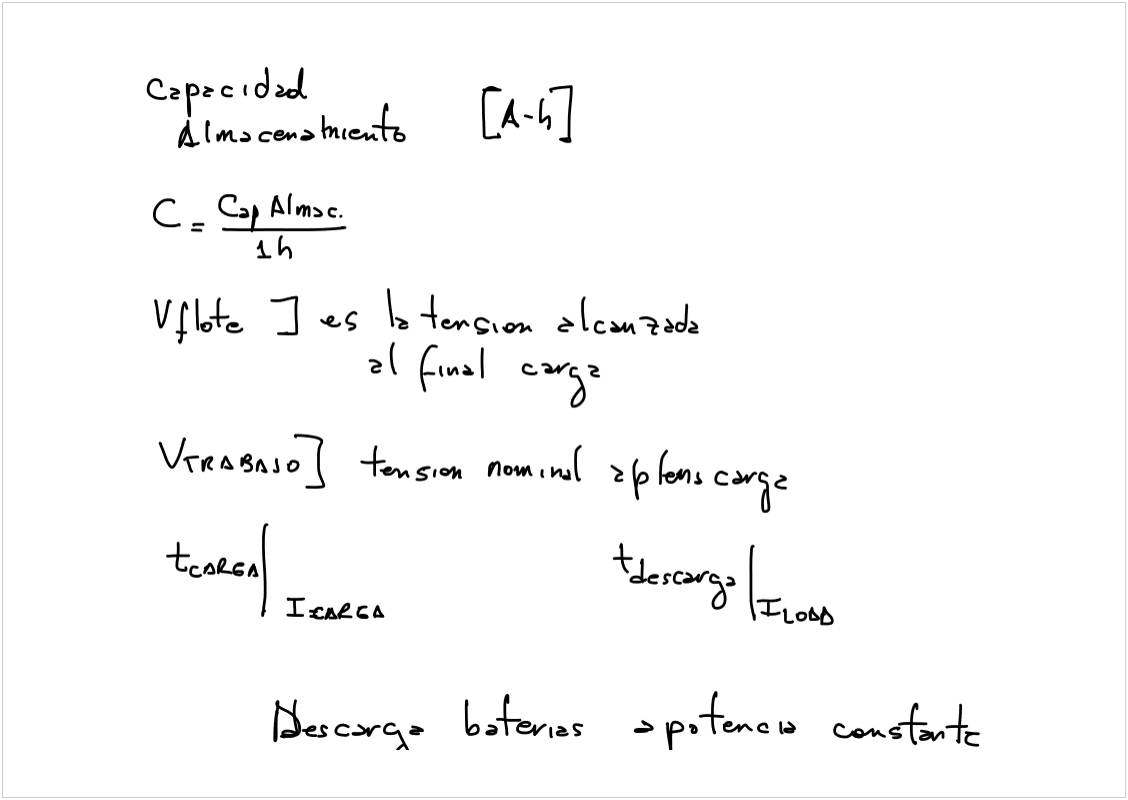 Capacidad
Almacenamiento [A-h]
C = Cap Almac.
1h
Vflote ] es la tension alcanzada
al final carga
VTRABAJO ] tension nominal a plena carga
tCARGA | ICARGA tdescarga | ILOAD
Descarga baterias a potencia constante